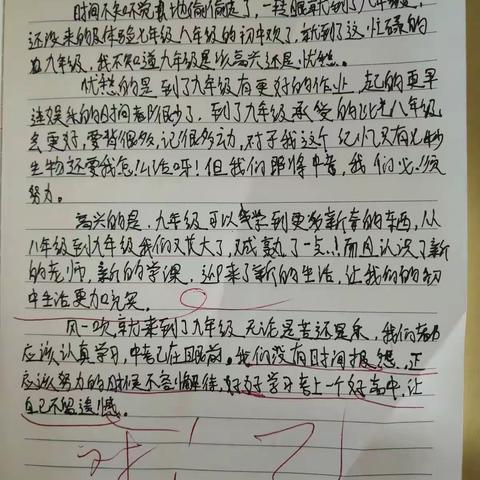 时间不知不觉悄悄地偷偷溜走了,一转眼就到了九年级,
还没来的及体验七年级八年级的初中欢了,就到了这忙碌的
九年级,我不知道九年级是以高兴还是忧愁。
忧愁的是到了九年级有更好的作业,起的更早
连娱乐的时间都很少了,到了九年级承受的比八年级
多更好,要背很多,记很多,对于我这个记
生物还要我怎么活呀!但我们即将中考,我们必须
努力。
高兴的是,九年级可以学到更多新奇的东西,从
八年级到九年级我们又长大了,成熟了一点!而且认识了新
的老师,新的学课,迎来了新的生活,让我们的初
中生活更加完美。
风一吹,就来到了九年级,无论是苦还是乐,我们都
应该认真学习,中考已在眼前。我们没有时间报怨,正
应该努力的时候不容懈怠,好好学习考上一个好高中,让
自己不留遗憾。